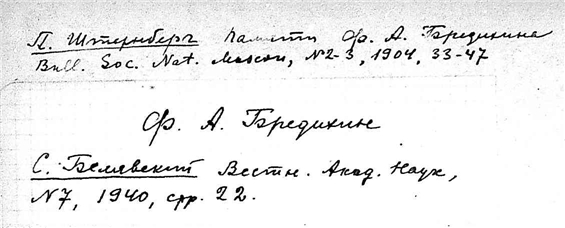 П. Штернберг Памяти Ф. А. Бредихина
Bull. Soc. Nat. Moscou, №2-3, 1904, 33-47
Ф. А. Бредихин
С. Белявский Вестн. Акад. Наук,
№7, 1940, стр. 22.